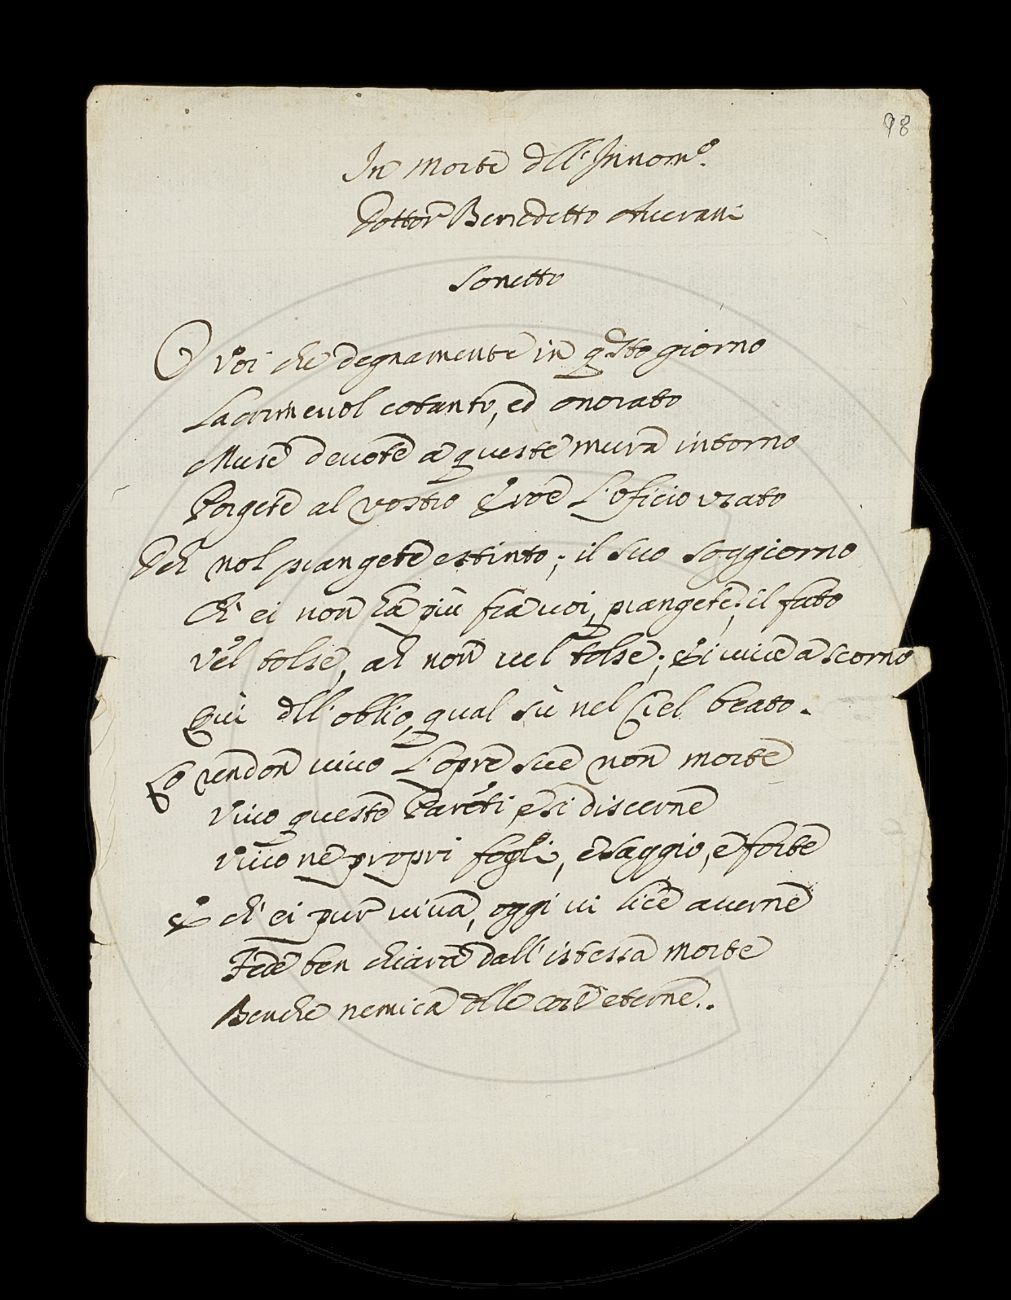 98
In Morte dll' Innom.º
Dottor Benedetto Averani
Sonetto
O Voi che degnamente in q.sto giorno
Lacrimevol cotanto, ed onorato
Muse devote a queste mura intorno
Porgete al vostro Eroe L'oficio usato
Deh nol piangete estinto; il suo soggiorno
Ch' ei non hà più fra voi, piangete; il fato
Vel tolse, ah non vel tolse; Ei vive a scorno
Qui dll' oblio, qual sù nel Ciel beato.
Lo rendon vivo L'opre sue non morte
Vivo queste Pareti, e si discerne
Vivo ne proprj fogli, e saggio, e forte
E ch' ei pur viva, oggi vi lice averne
Fede ben chiara dall' istessa morte
Benche nemica dlle cose eterne..